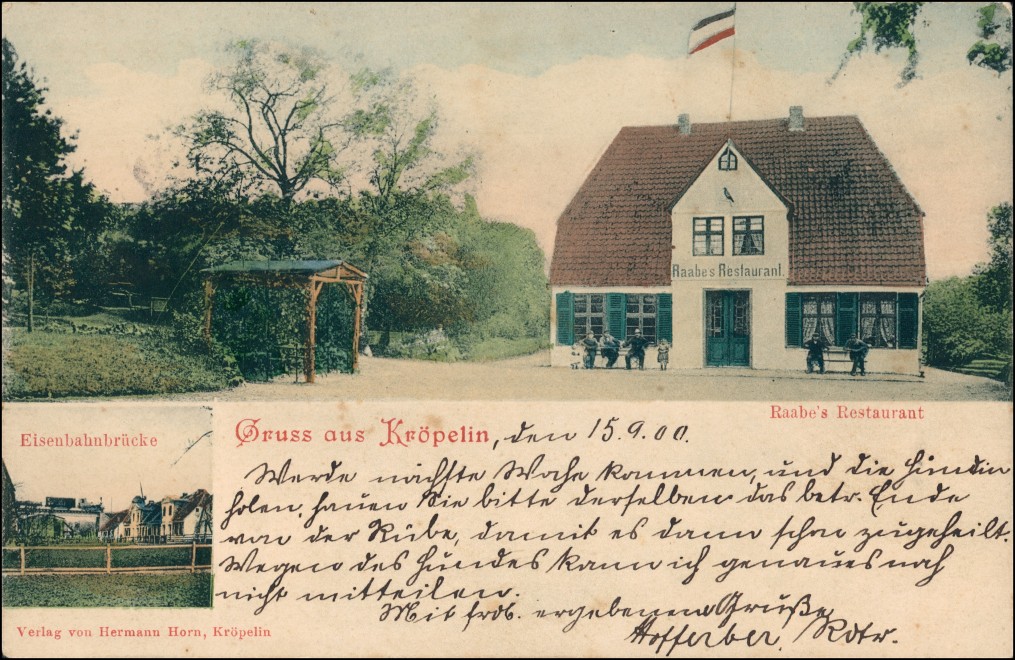 Raabe's Restaurant.
Raabe's Restaurant
Eisenbahnbrücke
Gruss aus Kröpelin, den 15.9.00.
Werde nächste Woche kommen, und die Hündin
holen, hauen Sie bitte derselben das betr. Ende
von der Rübe, damit es dann schon zugeheilt.
Wegen des Hundes kann ich genaues noch
nicht mitteilen.
Mit frdl. ergebenen Grüße
Hofferber, Rdtr.
Verlag von Hermann Horn, Kröpelin